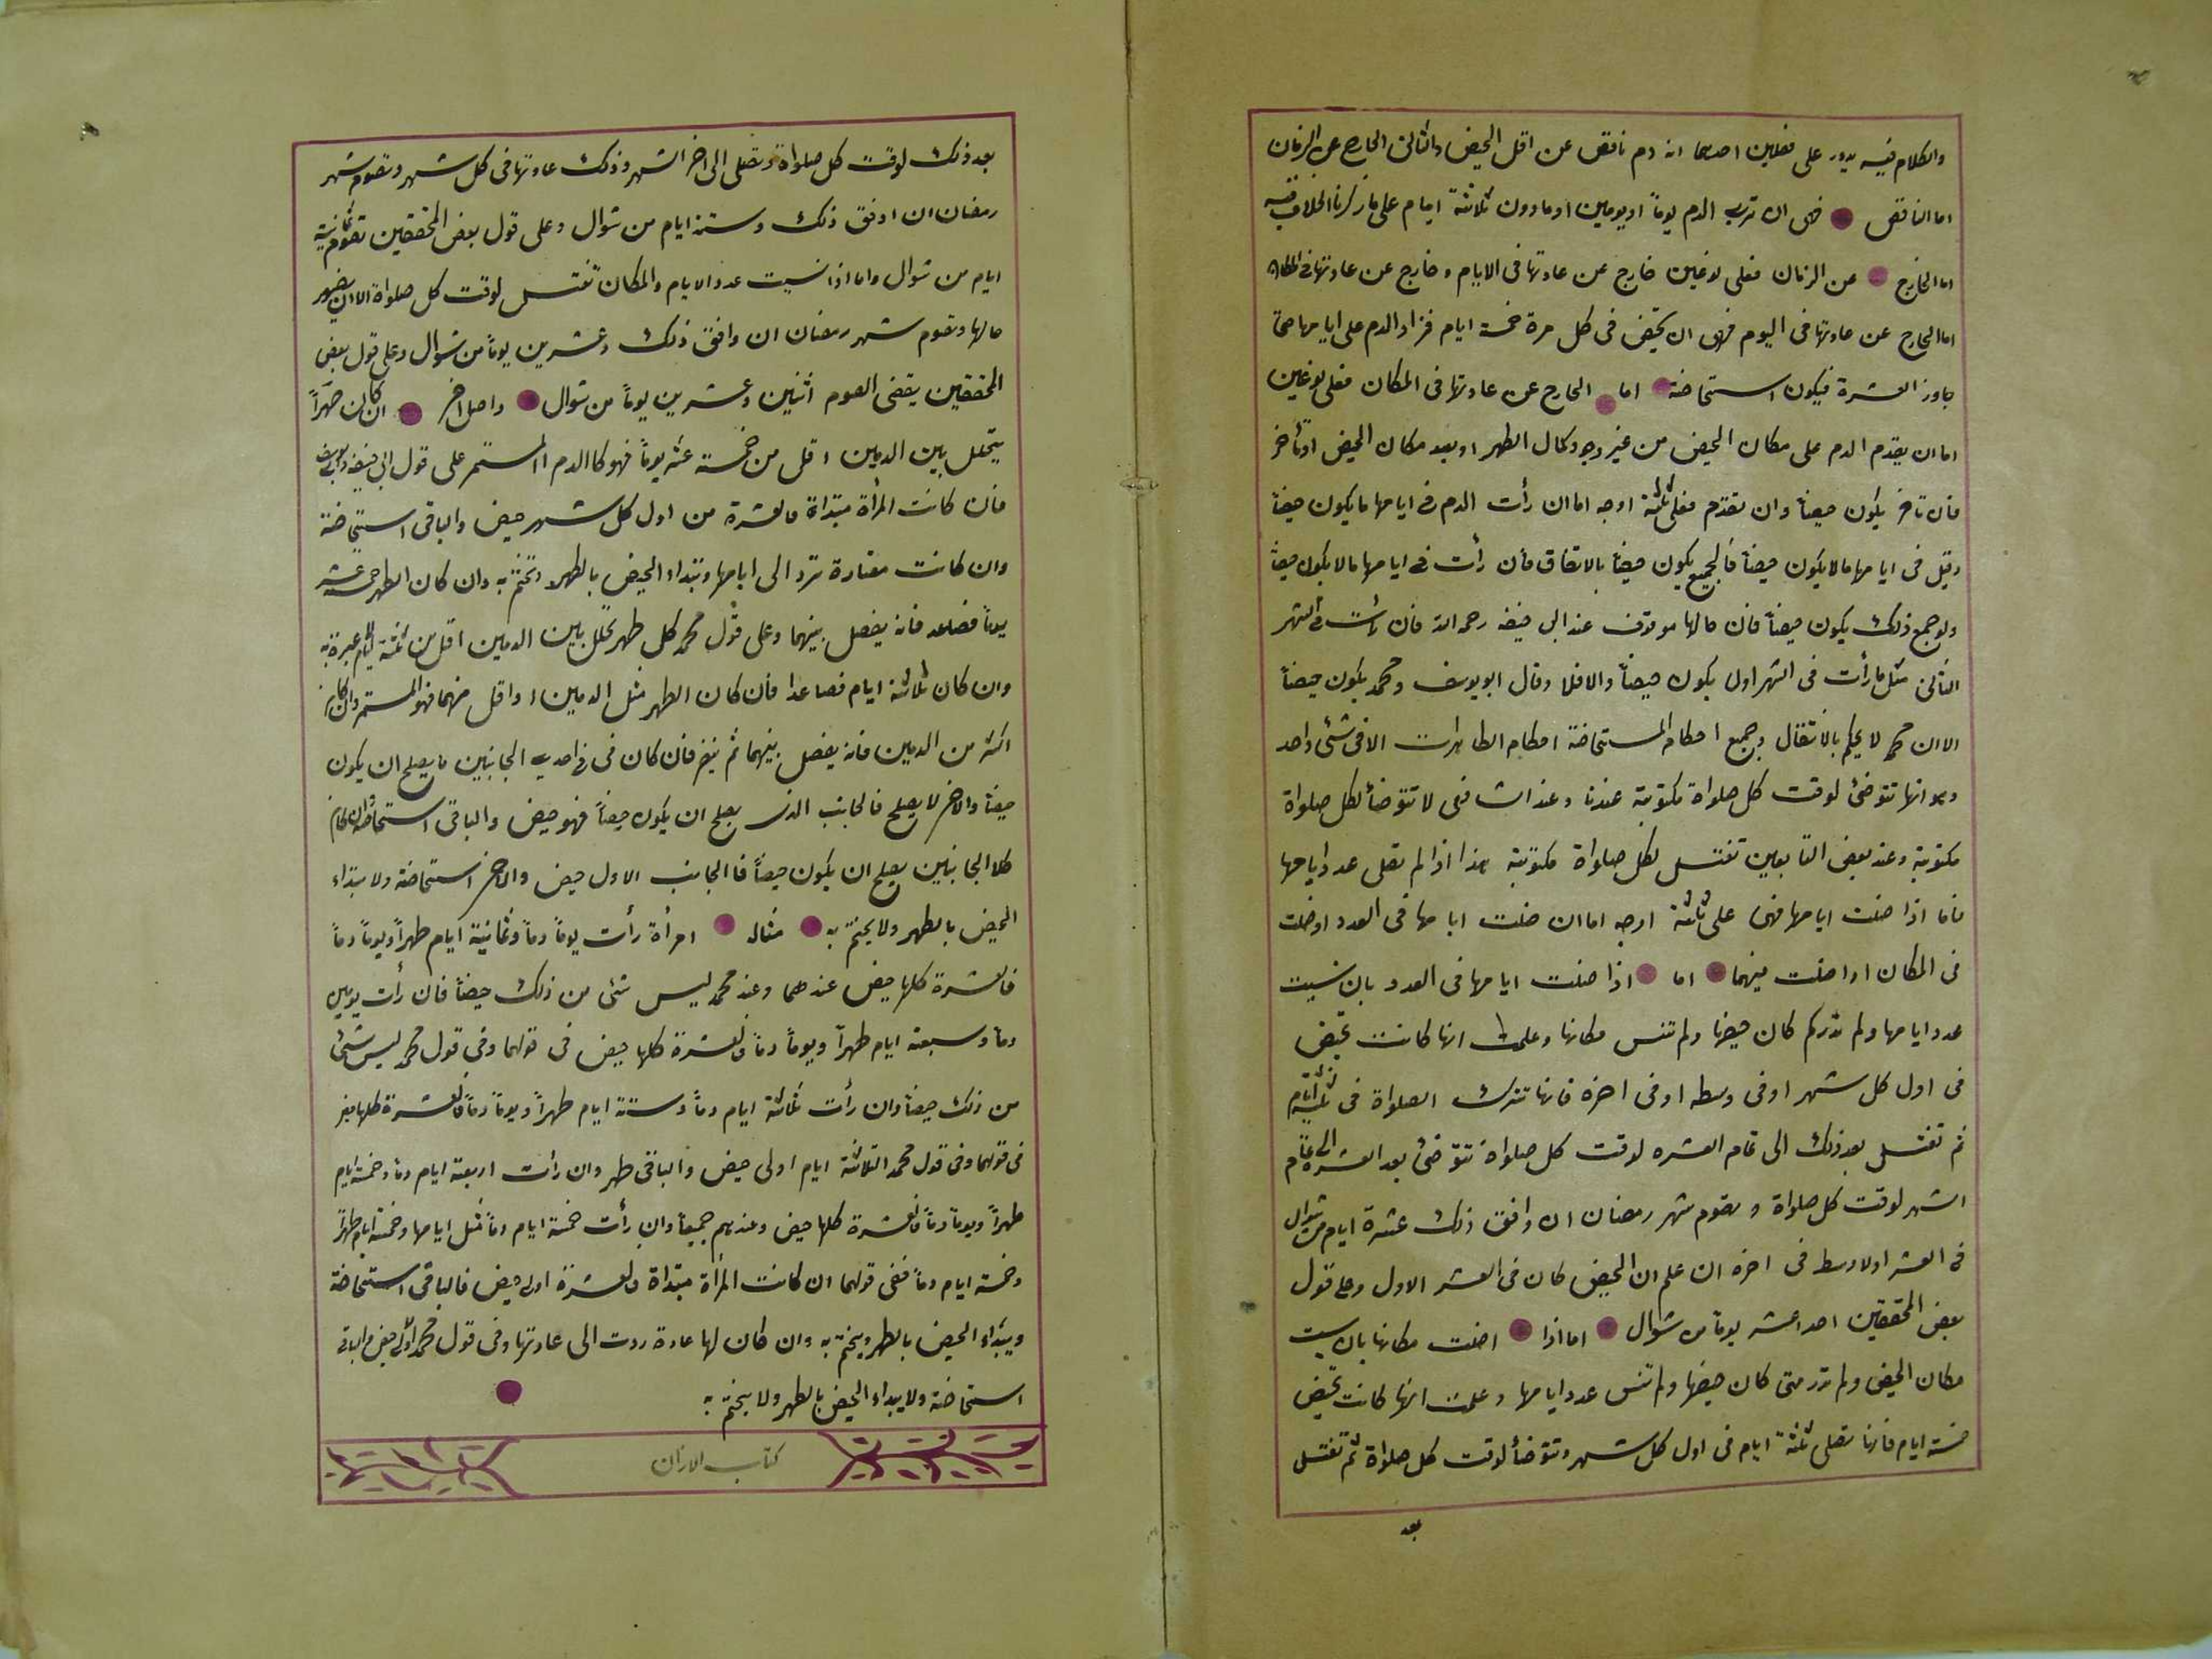 والكلام فيه يدور على فصلين احدهما انه دم ناقص عن اقل الحيض والثانى الخارج عن الزمان
اما الناقص فهى ان ترى الدم يوماً او يومين او مادون ثلاثة ايام على ما ذكرنا الخلاف فيه
اما الخارج عن الزمان فعلى نوعين خارج عن عادتها فى الايام وخارج عن عادتها فى المكان
اما الخارج عن عادتها فى اليوم فهى ان تحيض فى كل مرة خمسة ايام فزاد الدم على ايامها حتى
جاوز العشرة فيكون استحاضة اما الخارج عن عادتها فى المكان فعلى نوعين
اما ان يقدم الدم على مكان الحيض من غير وجود كمال الطهر او بعد مكان الحيض او تأخر
فان تاخر يكون حيضاً وان تقدم فعلى ثلثة اوجه اما ان رأت الدم فى ايامها ما يكون حيضاً
وقبل فى ايامها مالا يكون حيضاً فالجميع يكون حيضاً بالاتفاق فأن رأت فى ايامها مالا يكون حيضاً
ولو جمع ذلك يكون حيضاً فان حالها موقوف عند ابى حنيفه رحمه الله فان رأت فى الشهر
الثانى مثل ما رأت فى الشهر اول يكون حيضاً والا فلا وقال ابو يوسف ومحمد يكون حيضاً
الا ان محمد لا يحكم بالانتقال وجميع احكام المستحاضة احكام الطاهرات الا فى شئ واحد
وهو انها تتوضئ لوقت كل صلواة مكتوبة عندنا وعند الشافعى لا تتوضأ لكل صلواة
مكتوبة وعند بعض التابعين تغتسل لكل صلواة مكتوبة هذا اذا لم تضل عدد ايامها
فاما اذا ضلت ايامها فهى على ثلثة اوجه اما ان ضلت ايامها فى العدد او ضلت
فى المكان او اضلت فيهما اما اذا ضلت ايامها فى العدد بان نسيت
عدد ايامها ولم تدر كم كان حيضها ولم تنس مكانها وعلمت انها كانت تحيض
فى اول كل شهر او فى وسطه او فى اخره فانها تترك الصلواة فى ثلثة ايام
ثم تغتسل بعد ذلك الى تمام العشره لوقت كل صلواة تتوضئ بعد العشره الى تمام
الشهر لوقت كل صلواة وتصوم شهر رمضان ان وافق ذلك عشرة ايام من شوال
فى العشر اولا وسط فى اخره ان علم ان الحيض كان فى العشر الاول وعلى قول
بعض المحققين احد عشر يوماً من شوال اما اذا اضلت مكانها بان نسيت
مكان الحيض ولم تدر متى كان حيضها ولم تنس عدد ايامها وعلمت انها كانت تحيض
خمسة ايام فانها تصلى ثلثة ايام فى اول كل شهر وتتوضأ لوقت كل صلواة ثم تغتسل
بعد
بعد ذلك لوقت كل صلواة وتصلى الى اخر الشهر وذلك عادتها فى كل شهر وتصوم شهر
رمضان ان اوفق ذلك وستة ايام من شوال وعلى قول بعض المحققين تصوم ثمانية
ايام من شوال واما اذا نسيت عدد الايام والمكان تغتسل لوقت كل صلواة الا ان يضير
حالها وتصوم شهر رمضان ان وافق ذلك وعشرين يوماً من شوال وعلى قول بعض
المحققين يقضى الصوم اثنين وعشرين يوماً من شوال واصل اخر ان كان طهراً
يتخلل بين الدمين اقل من خمسة عشر يوماً فهو كا الدم المستمر على قول ابى حنيفه وابى يوسف
فأن كانت المرأة مبتداة فالعشرة من اول كل شهر حيض والباقى استحاضة
وان كانت معتادة ترد الى ايامها وتبتداء الحيض بالطهر وتختم به وان كان الطهر خمسة عشر
يوماً فصاعد فانه يفصل بينهما وعلى قول محمد كل طهر تخلل بين الدمين اقل من ثلثة ايام لا عبرة به
وان كان ثلاثة ايام فصاعدا فان كان الطهر مثل الدمين او اقل منهما فهو المستمر وان كان
اكثر من الدمين فانه يفصل بينهما ثم ينظر فان كان فى احدى الجانبين ما يصلح ان يكون
حيضاً والاخر لا يصلح فالجانب الذى يصلح ان يكون حيضاً فهو حيض والباقى استحاضة وان كان
كلا الجانبين يصلح ان يكون حيضاً فا الجانب الاول حيض والاخر استحاضة ولا يبتداء
الحيض بالطهر ولا يختم به مثال امرأة رأت يوماً دماً وثمانية ايام طهراً ويوماً دماً
فالعشرة كلها حيض عندهما وعند محمد ليس شئ من ذلك حيضاً فان رأت يومين
دماً وسبعة ايام طهراً ويوماً دماً فالعشرة كلها حيض فى قولهما وفى قول محمد ليس شئ
من ذلك حيضاً وان رأت ثلاثة ايام دماً وستة ايام طهراً ويوماً دماً فالعشرة كلها حيض
فى قولهما وفى قول محمد الثلاثة ايام اولى حيض والباقى طهر وان رأت اربعة ايام دماً وخمسة ايام
طهراً ويوماً دماً فالعشرة كلها حيض وعندهم جميعاً وان رأت خمسة ايام دماً مثل ايامها وخمسة ايام طهراً
وخمسة ايام دماً ففى قولهما ان كانت المرأة مبتداة فالعشرة اولى حيض فالباقى استحاضة
ويبتداء الحيض بالطهر ويختم به وان كان لها عادة ردت الى عادتها وفى قول محمد اولى حيض والباقى
استحاضة ولا يبداء الحيض بالطهر ولا يختم به
كتاب الاذان